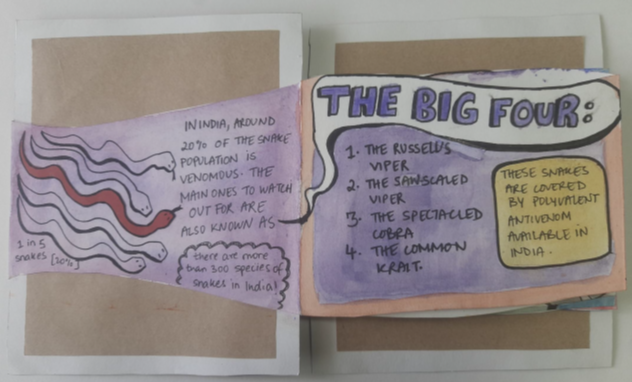 IN INDIA, AROUND
20% OF THE SNAKE
POPULATION IS
VENOMOUS. THE
MAIN ONES TO WATCH
OUT FOR ARE
ALSO KNOWN AS
1 in 5
snakes [20%]
there are more
than 300 species of
snakes in India!
THE BIG FOUR:
1. THE RUSSELL'S
VIPER
2. THE SAW-SCALED
VIPER
3. THE SPECTACLED
COBRA
4. THE COMMON
KRAIT.
THESE SNAKES
ARE COVERED
BY POLYVALENT
ANTIVENOM
AVAILABLE IN
INDIA.